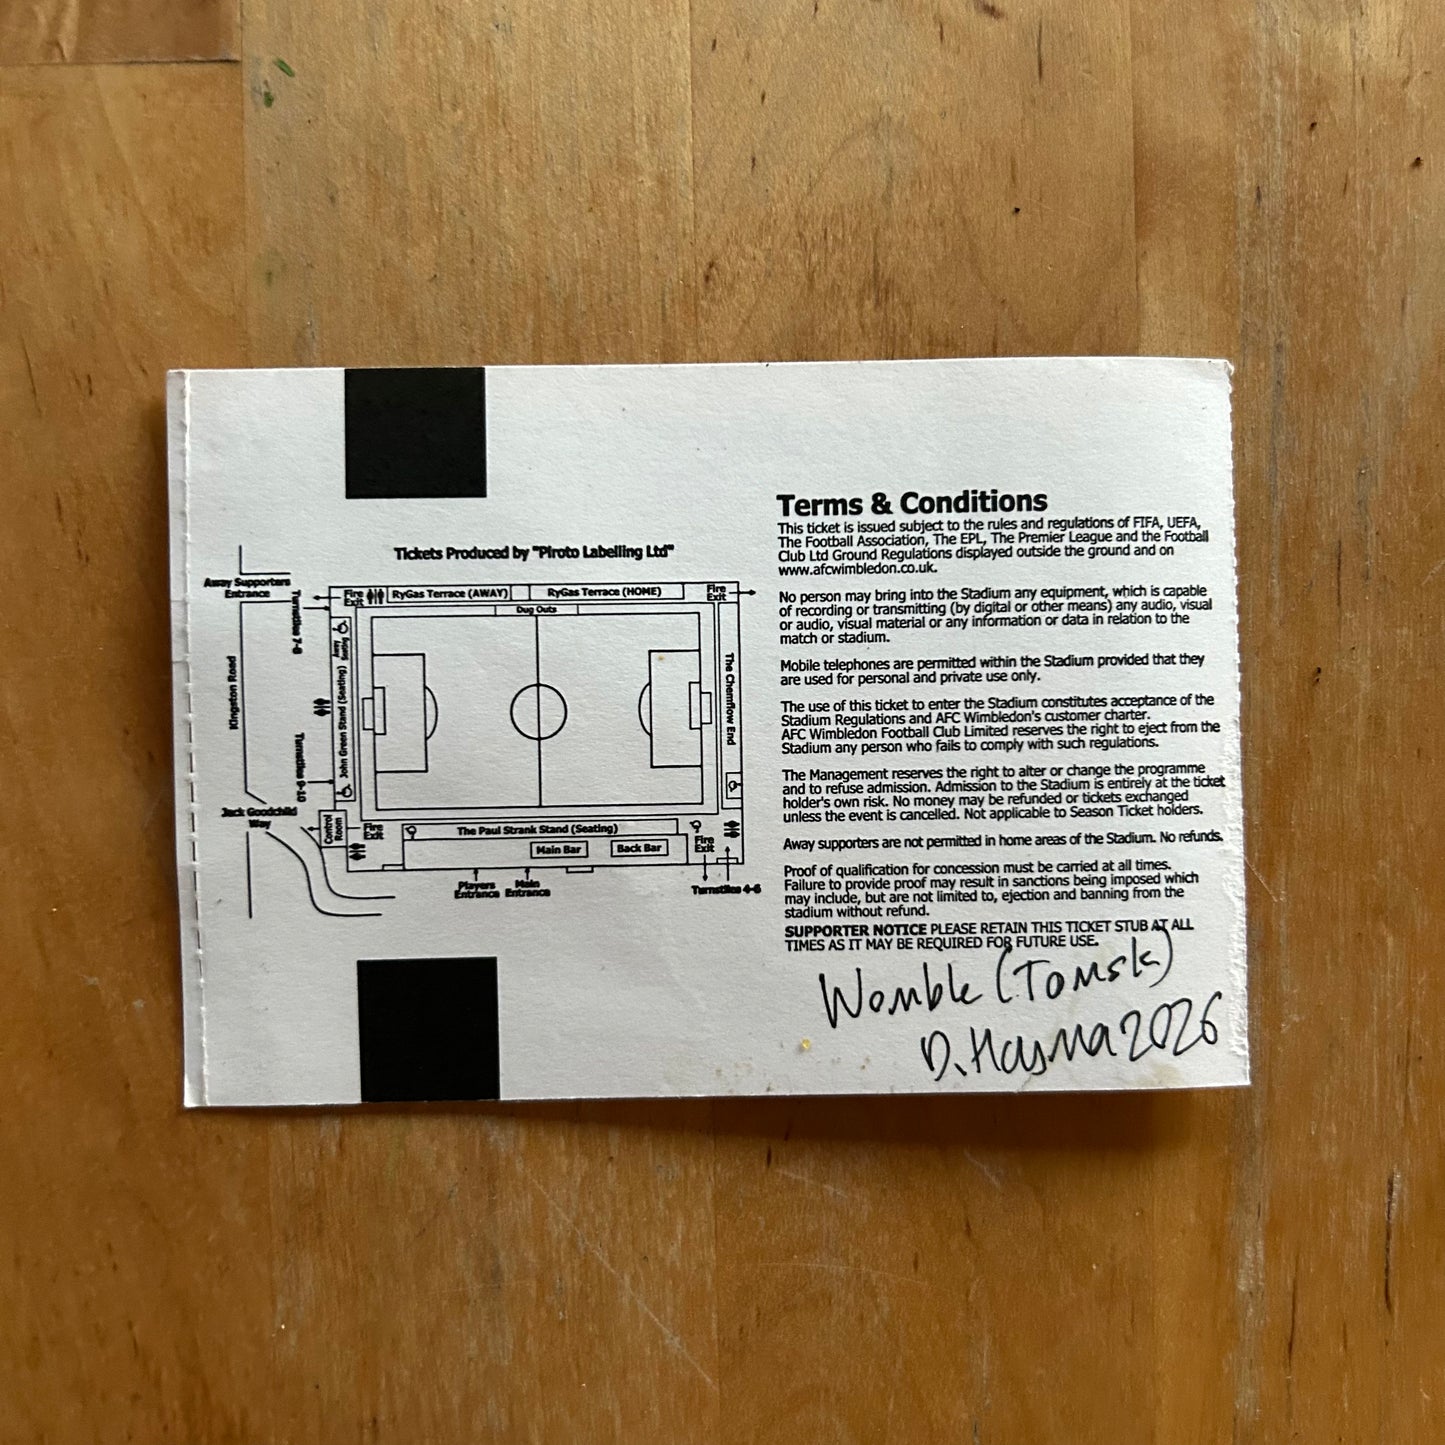 Tickets Produced by "Piroto Labelling Ltd"
Away Supporters
Entrance
Fire
Exit
RyGas Terrace (AWAY)
RyGas Terrace (HOME)
Fire
Exit
Dug Outs
Turnstiles 7-8
Away
Seating
John Green Stand (Seating)
Kingston Road
Turnstiles 9-10
The Chemflow End
Jack Goodchild
Way
Control
Room
Fire
Exit
The Paul Strank Stand (Seating)
Main Bar
Back Bar
Fire
Exit
Players
Entrance
Main
Entrance
Turnstiles 4-6
Terms & Conditions
This ticket is issued subject to the rules and regulations of FIFA, UEFA,
The Football Association, The EPL, The Premier League and the Football
Club Ltd Ground Regulations displayed outside the ground and on
www.afcwimbledon.co.uk.
No person may bring into the Stadium any equipment, which is capable
of recording or transmitting (by digital or other means) any audio, visual
or audio, visual material or any information or data in relation to the
match or stadium.
Mobile telephones are permitted within the Stadium provided that they
are used for personal and private use only.
The use of this ticket to enter the Stadium constitutes acceptance of the
Stadium Regulations and AFC Wimbledon's customer charter.
AFC Wimbledon Football Club Limited reserves the right to eject from the
Stadium any person who fails to comply with such regulations.
The Management reserves the right to alter or change the programme
and to refuse admission. Admission to the Stadium is entirely at the ticket
holder's own risk. No money may be refunded or tickets exchanged
unless the event is cancelled. Not applicable to Season Ticket holders.
Away supporters are not permitted in home areas of the Stadium. No refunds.
Proof of qualification for concession must be carried at all times.
Failure to provide proof may result in sanctions being imposed which
may include, but are not limited to, ejection and banning from the
stadium without refund.
SUPPORTER NOTICE PLEASE RETAIN THIS TICKET STUB AT ALL
TIMES AS IT MAY BE REQUIRED FOR FUTURE USE.
Womble (Tomsk)
D. 2026